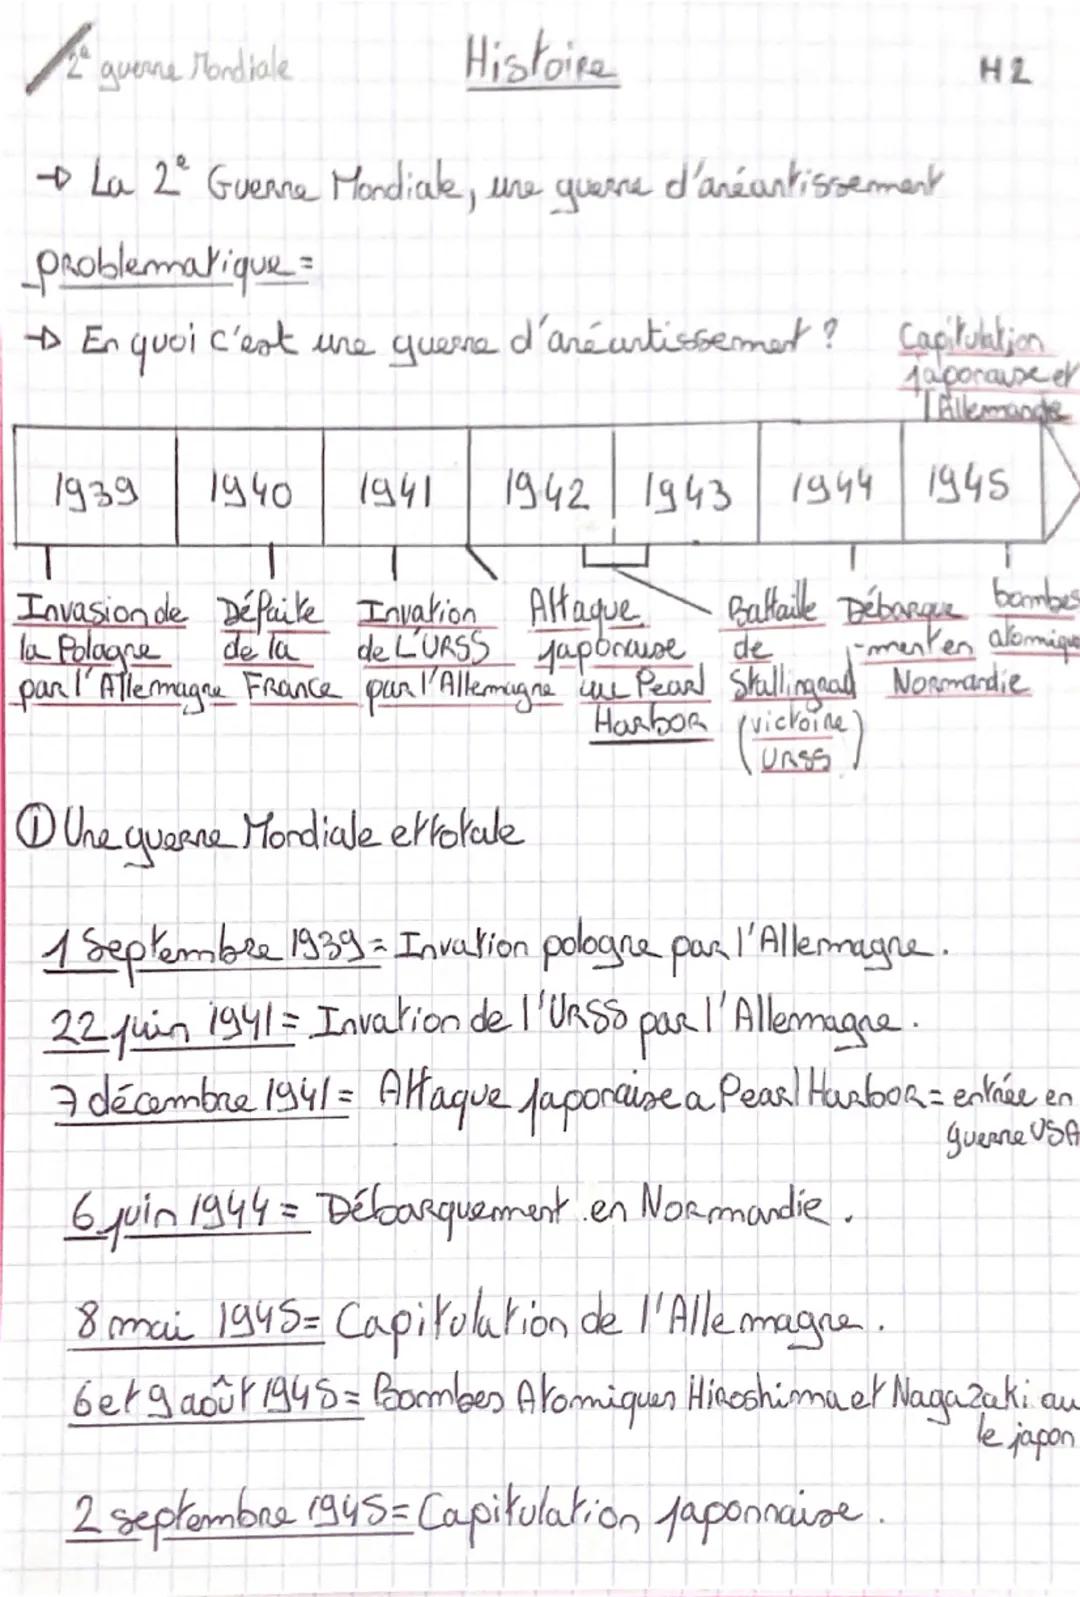 2e guerre Mondiale
Histoire
H2
→ La 2e Guerre Mondiale, une guerre d'anéantissement
problematique =
→ En quoi c'est une guerre d'anéantissement ?
Capitulation
japonaise et
Allemande
1939 1940 1941 1942 1943 1944 1945
Invasion de
la Pologne
par l'Allemagne
Défaite
de la
France
Invation
de L'URSS
par l'Allemagne
Attaque
japonaise
sur Pearl
Harbor
Battaille
de
Stallingrad
(victoire
URSS)
Débarque
-ment en
Normandie
bombes
atomique
① Une guerre Mondiale et totale
1 Septembre 1939 = Invation pologne par l'Allemagne.
22 juin 1941 = Invation de l'URSS par l'Allemagne.
7 décembre 1941 = Attaque japonaise a Pearl Harbor = entrée en
guerre USA
6 juin 1944 = Débarquement en Normandie.
8 mai 1945 = Capitulation de l'Allemagne.
6 et 9 août 1945 = Bombes Atomiques Hiroshima et Nagazaki au
le japon
2 septembre 1945 = Capitulation japonnaise.